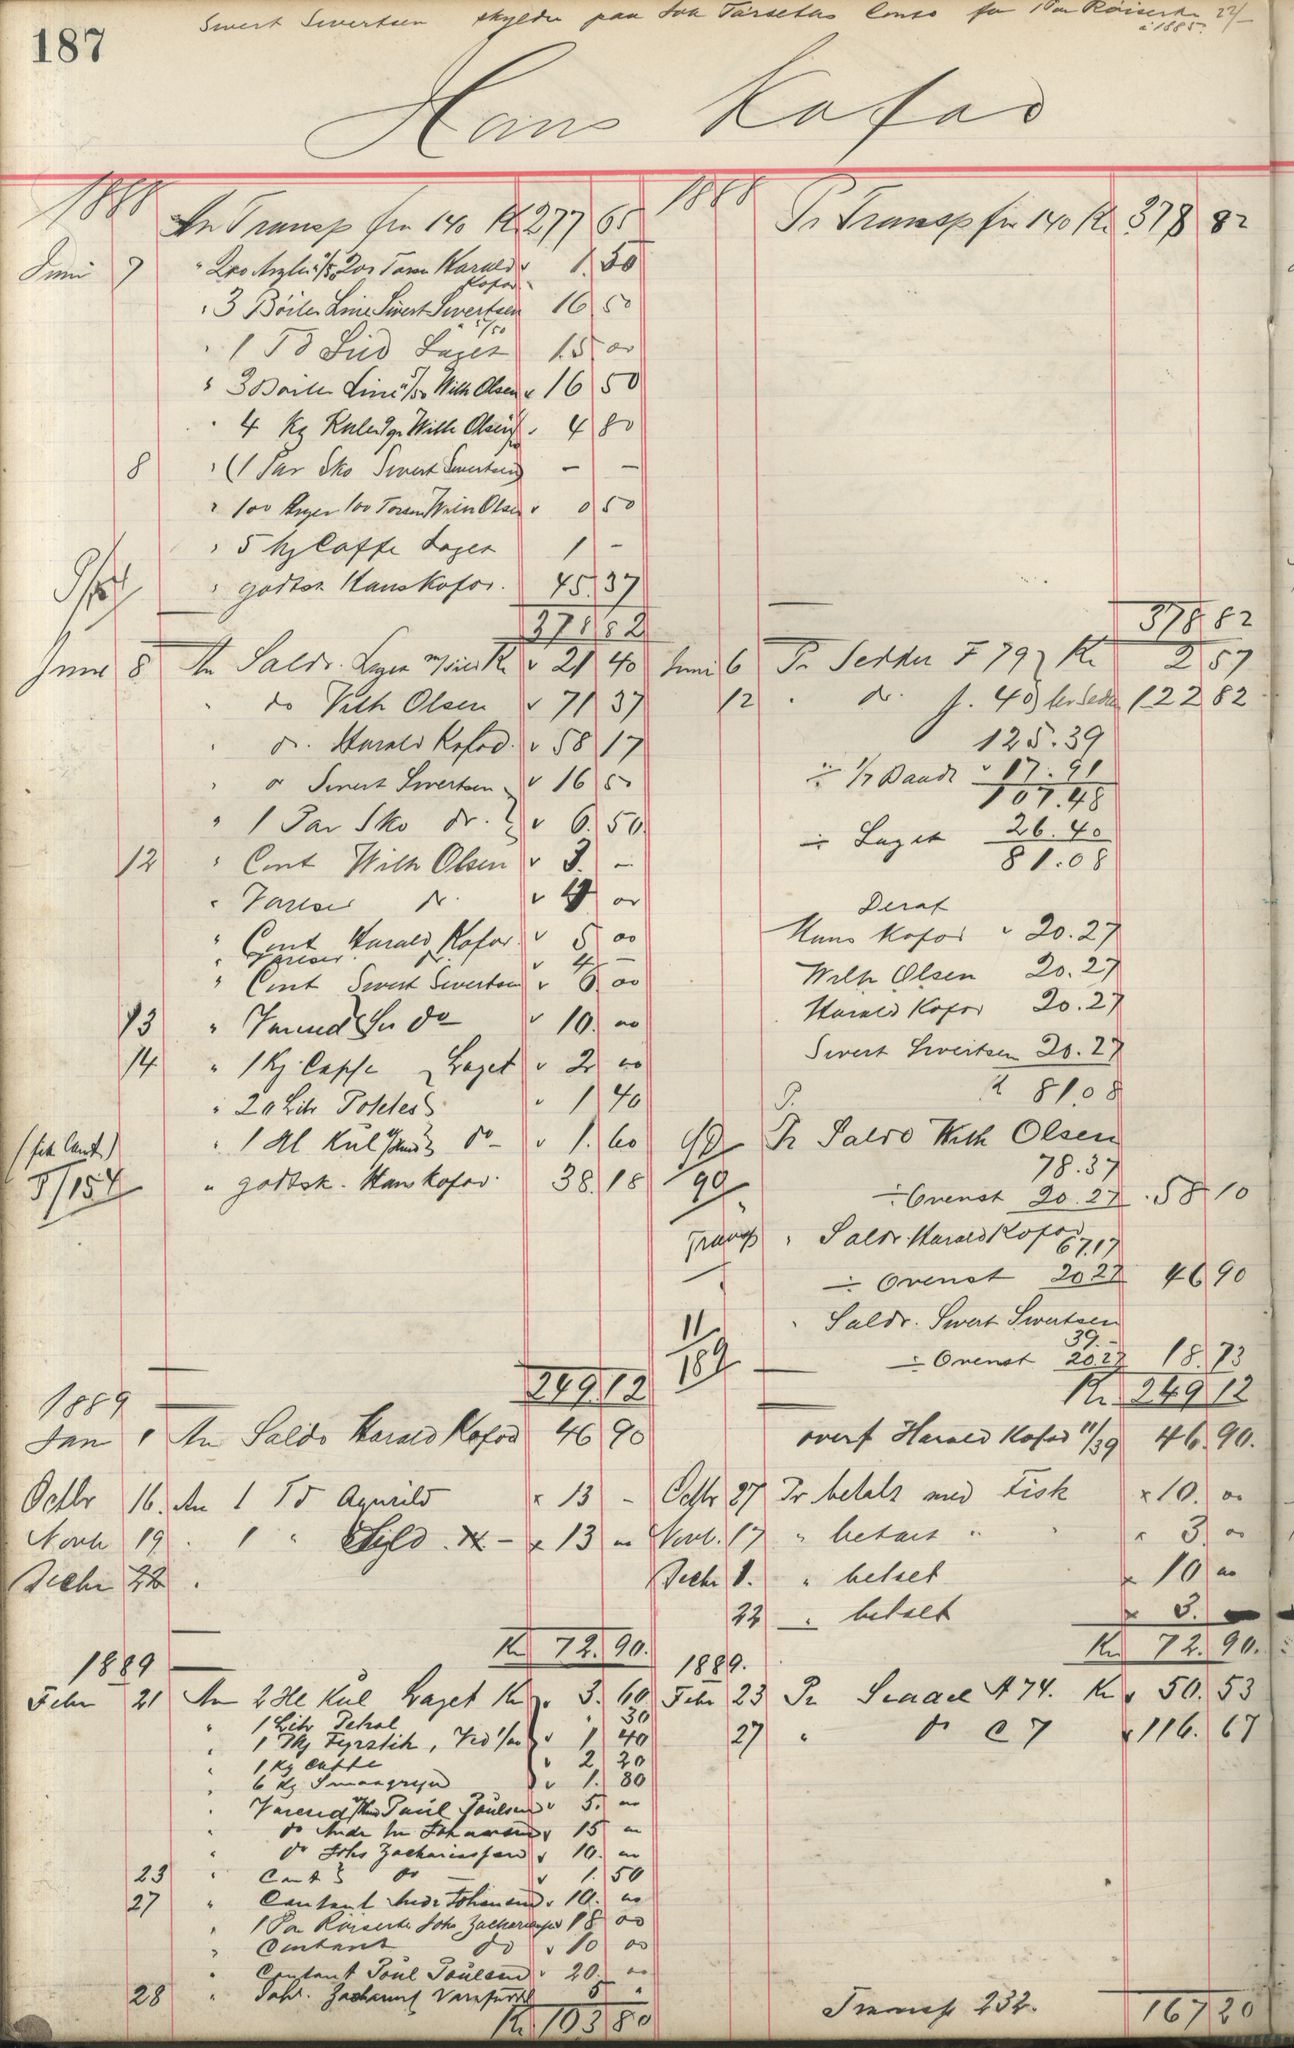 Sivert Sivertsen skylder paa Joh Tarseths Conto for 1 Par Röiserte 22/-
i 1885.
187
Hans Kofod
1888
An Transp fra 140 Kr 277 65
Juni 7 " 200 5/50 200 Harald Kofod 1. 50
" 3 Böiler Line Sivert Sivertsen 16 50
" 1 Td Sild Laget 15 00
" 3 Böiler Line 5/50 Wilh Olsen 16 50
" 4 Kg Wilh Olsen 4 80
8 " (1 Par Sko Sivert Sivertsen) – –
" 100 100 Wilh Olsen 0 50
" 5 Kg Caffe Laget 1 –
" godtsk Hans Kofod. 45. 37
378 82
June 8 An Saldo. Laget Kr 21 40
" do Vilh Olsen 71 37
" do. Harald Kofod. 58 17
" do Sivert Sivertsen 16 50
" 1 Par Sko do. 6. 50.
12 " Cont Wilh Olsen 3. –
" Varesed do. 4 00
" Cont Harald Kofod. 5 00
" Varesed do. 4 –
" Cont Sivert Sivertsen 6 00
13 " Varesed do 10. 00
14 " 1 Kg Caffe Laget 2 00
" 20 Litr Potetes 1 40
" 1 Hl Kul do 1. 60
(fik Cont)
F/154 " godtsk. Hans Kofod. 38. 18
249. 12
1889
Jan 1 An Saldo Harald Kofod 46 90
Octbr 16. An 1 Td Agnsild x 13 –
Novb 19 " 1 " Sild x 13 00
Decbr 22 "
Kr 72. 90.
1889
Febr 21 An 2 Hl Kul Laget Kr 3. 60
" 1 Litr Petrol 30
" 1 Pkj Fyrstik, Ved 1/00 1 40
" 1 Kg Caffe 2 20
" 6 Kg Smaagryn 1. 80
" Varesed Paul Poulsen 5. 00
" do Andr Johansen 15 00
" do Johs Zachariassen 10. 00
23 " Cont do – 1. 50
27 " Contant Andr Johansen 10. 00
" 1 Par Röiserte Johs Zachariassen 18 00
" Contant do 10 00
" Contant Poul Poulsen 20. 00
28 " Johs. Zachariass 5 "
Kr 103 80
1888
Pr Transp fra 140 Kr 378 82
378 82
Juni 6 Pr Seddel F 79 Kr 2 57
12 " do. f. 40 122 82
125.39
÷ 1/7 Baade 17.91
107.48
÷ Laget 26.40
81.08
Deraf
Hans Kofod 20.27
Wilh Olsen 20.27
Harald Kofod 20.27
Sivert Sivertsen 20.27
Kr 81.08
Pr Saldo Wilh Olsen
90 78.37
÷ Ovenst 20.27 58 10
Transp " Saldo. Harald Kofod
67.17
÷ Ovenst 20 27 46 90
" Saldo. Sivert Sivertsen
11/189 39.–
÷ Ovenst 20.27 18. 73
Kr. 249 12
overf Harald Kofod 11/39 46. 90.
Octbr 27 Pr betalt med Fisk x 10. 00
Novb. 17 " betalt " " x 3. 00
Decbr 1. " betalt x 10 00
22 " betalt x 3.
Kr 72. 90.
1889.
Febr 23 Pr Seddel A 74. Kr 50. 53
27 " do C 7 116. 67
Transp 232. 167 20